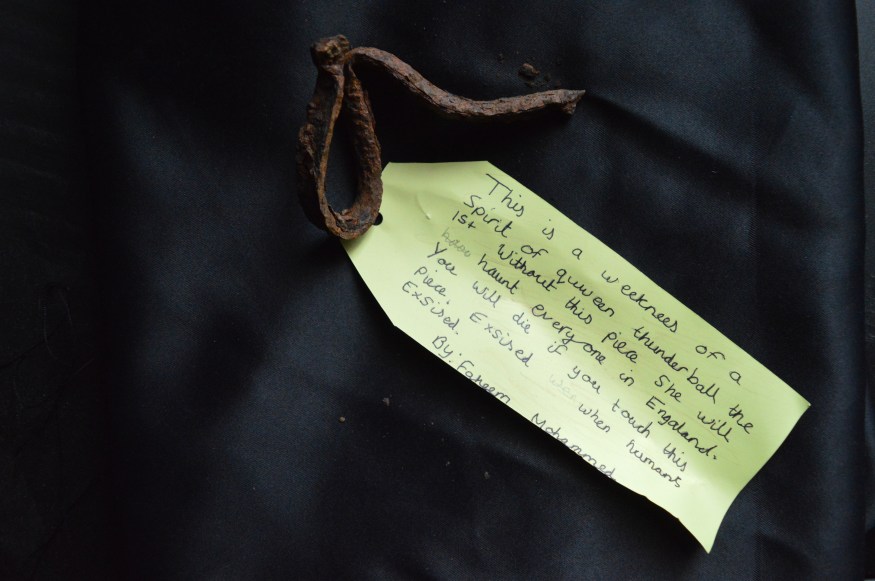 This is a weeknees of a
Spirit of quween thunderball the
1st without this piece She will
haunt everyone in Engaland.
You will die if you touch this
piece. Exsised when humans
Exsised.
By: Faheem Mohammed